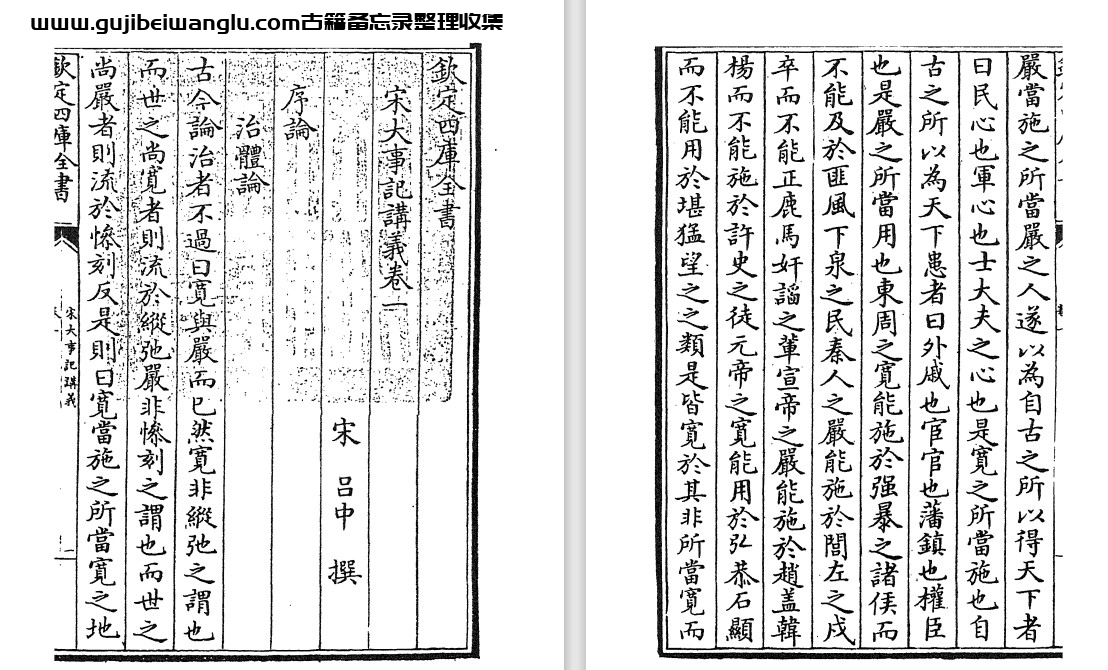 www.gujibeiwanglu.com古籍备忘录整理收集
欽定四庫全書
宋大事記講義卷一
宋 呂中 撰
序論
治體論
古今論治者不過曰寛與嚴而已然寛非縱弛之謂也
而世之尚寛者則流於縱弛嚴非慘刻之謂也而世之
尚嚴者則流於慘刻反是則曰寛當施之所當寛之地
欽定四庫全書
宋大事記講義
一
嚴當施之所當嚴之人遂以為自古之所以得天下者
曰民心也軍心也士大夫之心也是寛之所當施也自
古之所以為天下患者曰外戚也宦官也藩鎮也權臣
也是嚴之所當用也東周之寛能施於强暴之諸侯而
不能及於匪風下泉之民秦人之嚴能施於閭左之戍
卒而不能正鹿馬奸謟之軰宣帝之嚴能施於趙盖韓
楊而不能施於許史之徒元帝之寛能用於弘恭石顯
而不能用於堪猛望之之類是皆寛於其非所當寛而